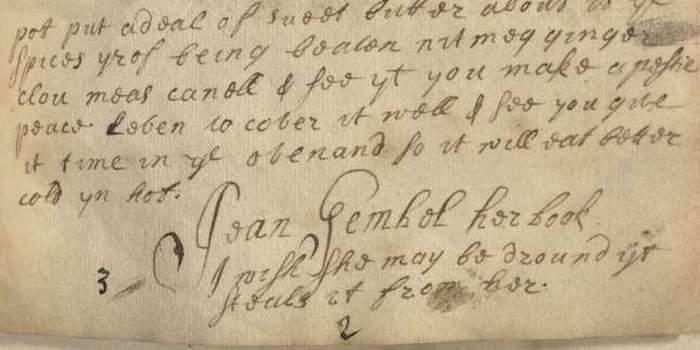 pot put adeal of sweet butter about it ye
spices yrof being beaten nitmeg ginger
clou meas canell & see yt you make a pestie
peace Leben to cober it well & see you give
it time in ye obenand so it will eat better
cold yn hot.
Jean Gembel her book
3 I wish she may be dround yt
steals it from her.
2